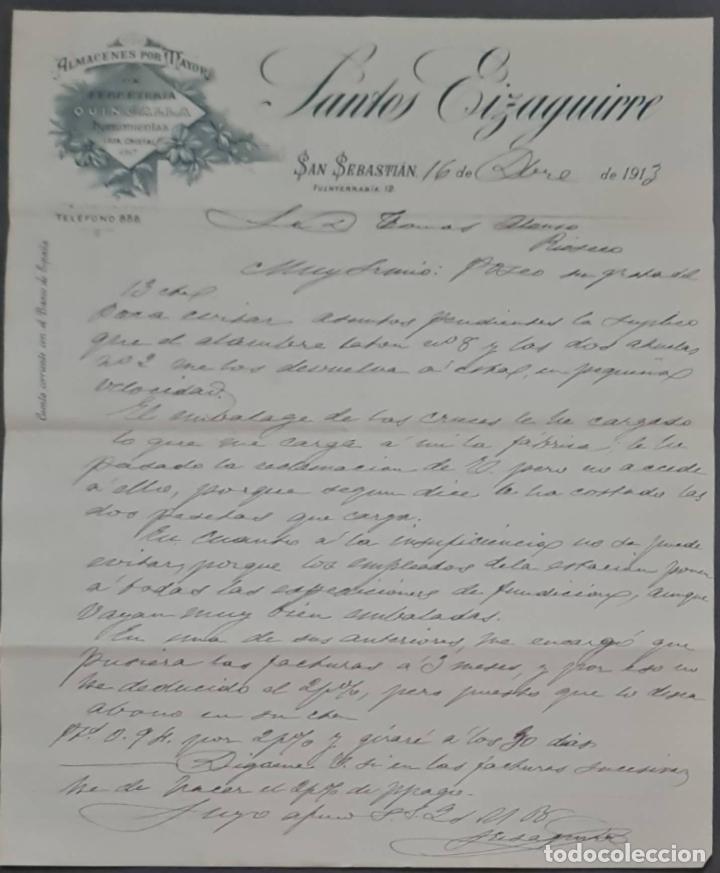 ALMACENES POR MAYOR
DE
FERRETERÍA
QUINCALLA
Herramientas
LOZA, CRISTAL
Santos Eizaguirre
SAN SEBASTIÁN, 16 de Dbre de 1913
FUENTERRABÍA 12.
TELÉFONO 888
Cuenta corriente con el Banco de España
Sr. D. Tomas Alonso
Rioseco
Muy Sr mio: Poseo su grata del
13 
Para evitar asuntos pendientes le suplico
que el alambre laton nº 8 y las dos abuelas
nº 2 me los devuelva á esta, en pequeña
velocidad.
El embalage de las cruces le he cargado
lo que me carga á mi la fábrica: le he
pasado la reclamacion de V. pero no accede
á ello, porque segun dice le ha costado las
dos pesetas que carga.
En cuanto á la insuficiencia no se puede
evitar, porque los empleados de la estacion ponen
á todas las expediciones de fundicion, aunque
vayan muy bien embaladas.
En una de sus anteriores, me encargó que
pusiera las facturas á 3 meses, y por eso no
he deducido el 2p%, pero puesto que lo desea
abono en su cta
Pts 0.94. por 2p% y giraré á los 30 dias
Digame V. si en las facturas sucesivas
he de hacer el 2p% de
Suyo afmo s.s.
todocoleccion.net